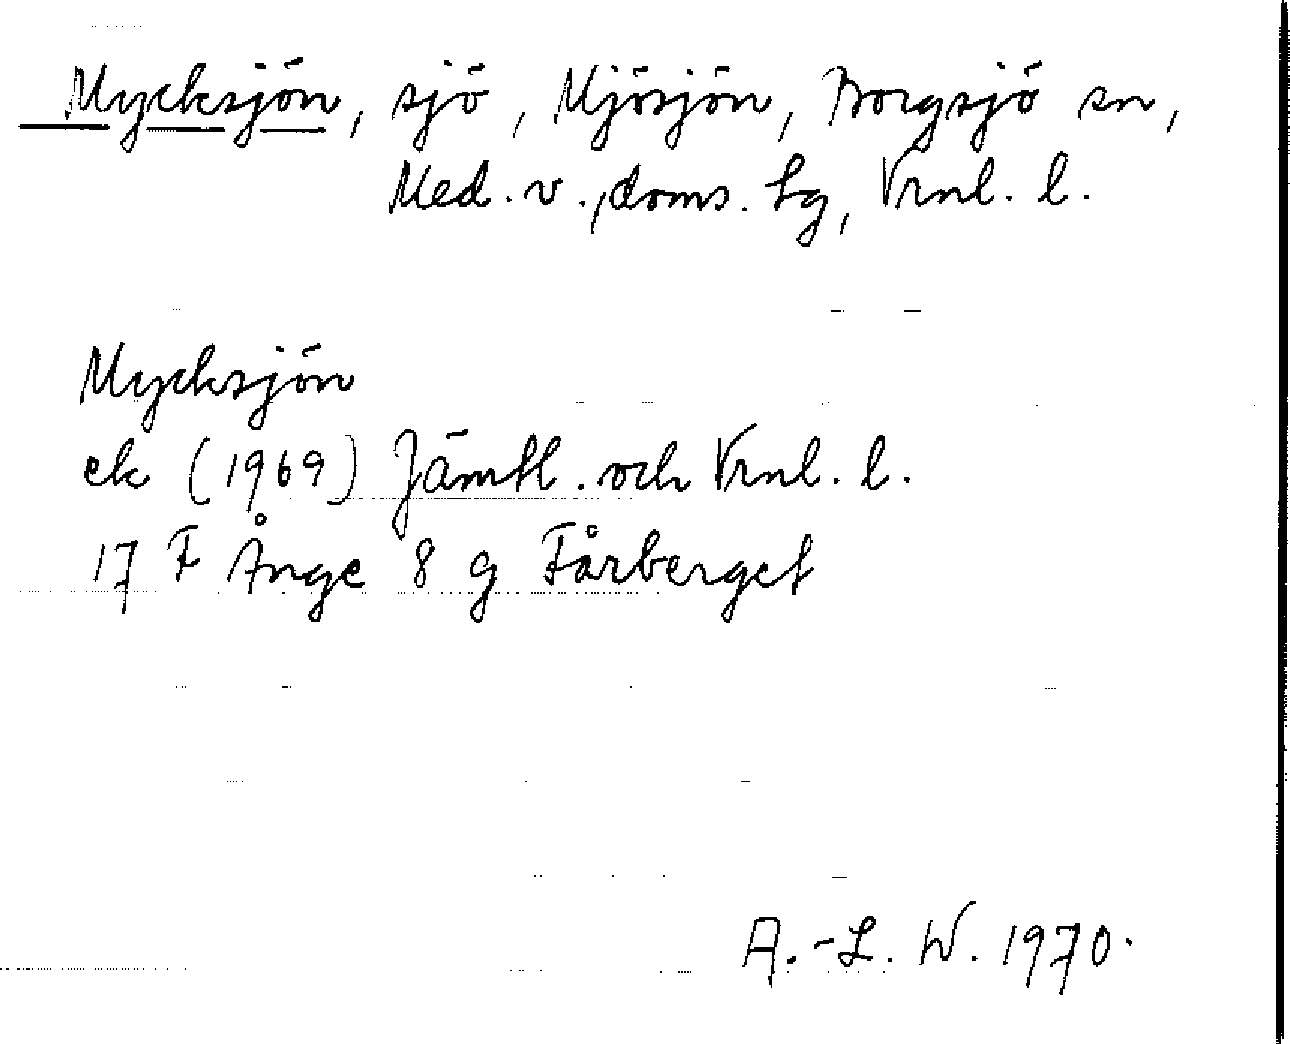 Mycksjön, sjö, Mjösjön, Borgsjö sn,
Med. v., doms. hg, Vrnl. l.
Mycksjön
ek (1969) Jämtl. och Vrnl. l.
17 F Ånge 8 g Fårberget
A.-L. W. 1970.